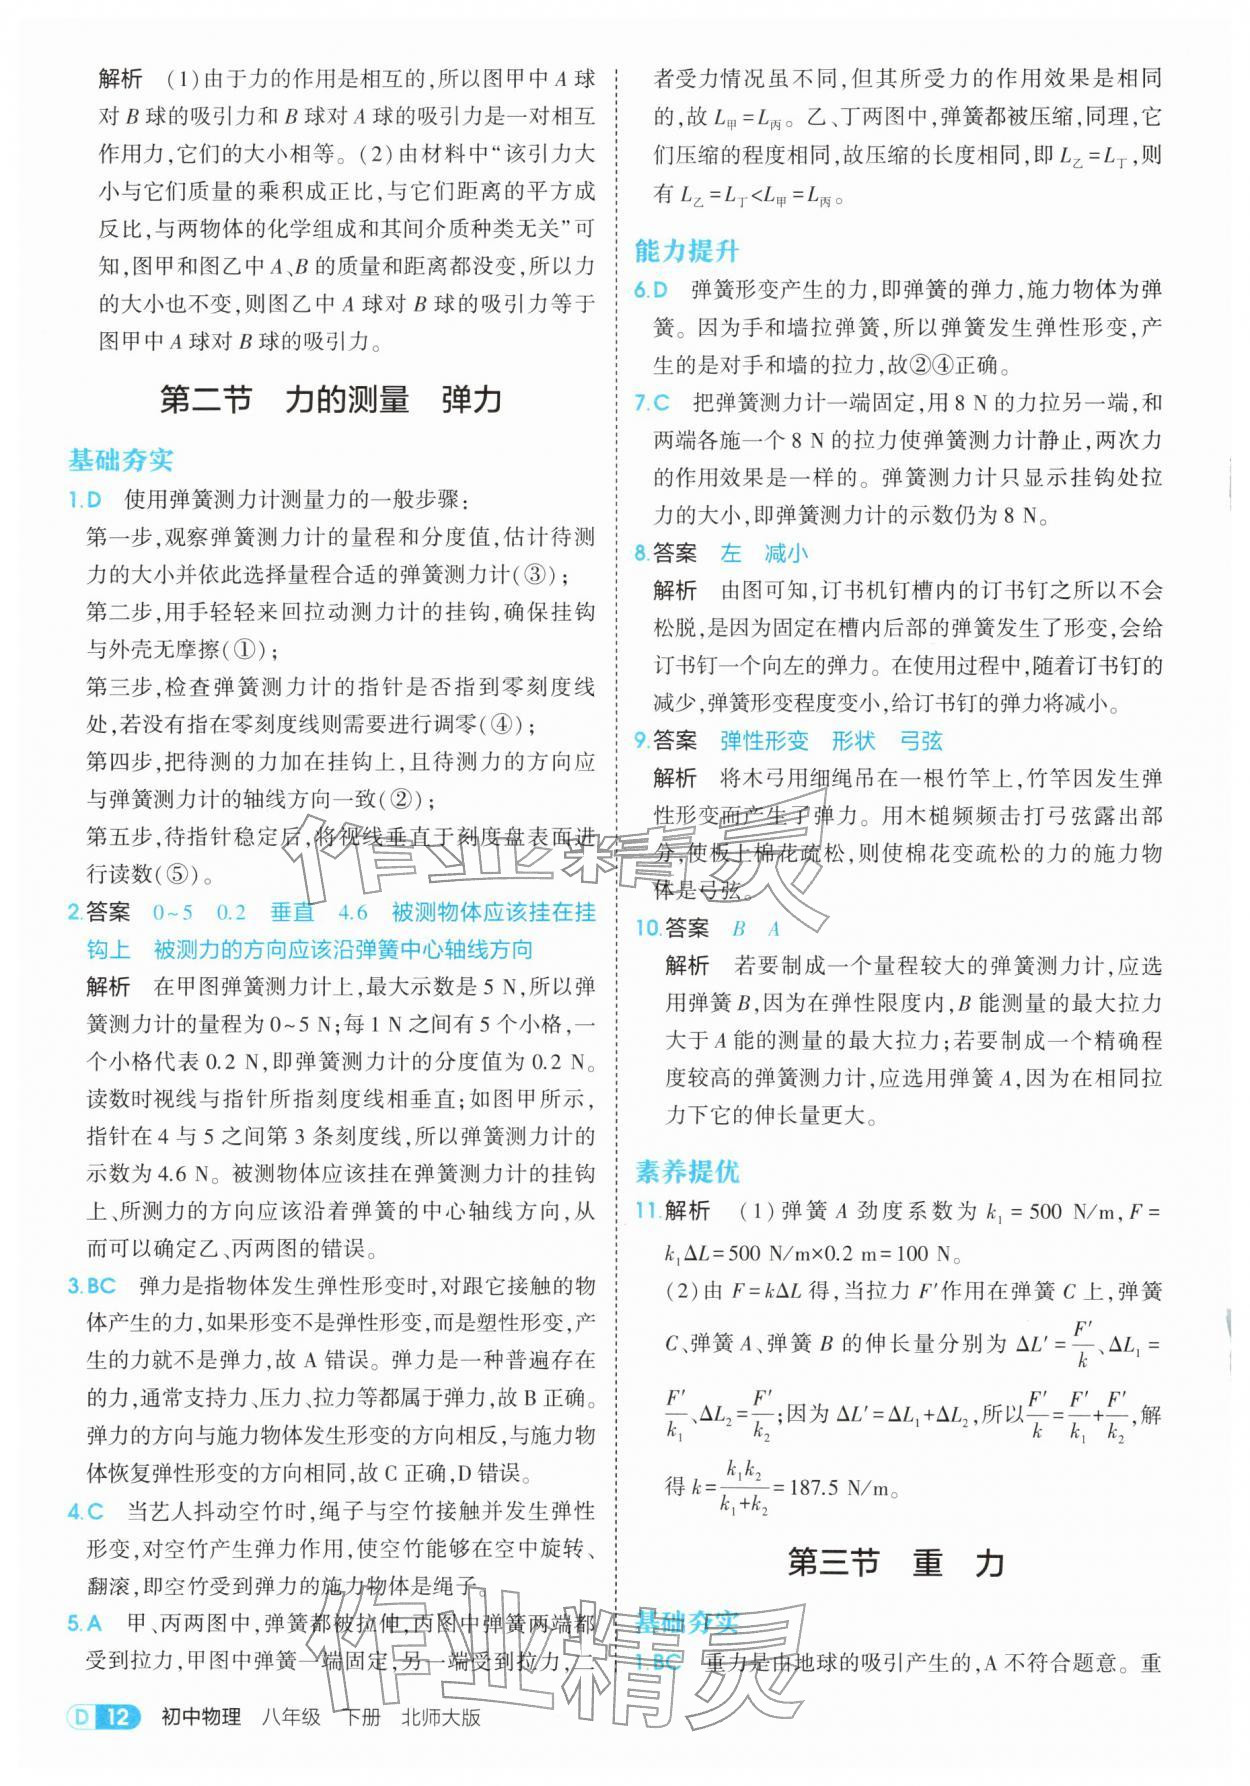 解析 (1)由于力的作用是相互的,所以图甲中 A 球
对 B 球的吸引力和 B 球对 A 球的吸引力是一对相互
作用力,它们的大小相等。(2)由材料中“该引力大
小与它们质量的乘积成正比,与它们距离的平方成
反比,与两物体的化学组成和其间介质种类无关”可
知,图甲和图乙中 A、B 的质量和距离都没变,所以力
的大小也不变,则图乙中 A 球对 B 球的吸引力等于
图甲中 A 球对 B 球的吸引力。
第二节 力的测量 弹力
基础夯实
1.D 使用弹簧测力计测量力的一般步骤:
第一步,观察弹簧测力计的量程和分度值,估计待测
力的大小并依此选择量程合适的弹簧测力计(③);
第二步,用手轻轻来回拉动测力计的挂钩,确保挂钩
与外壳无摩擦(①);
第三步,检查弹簧测力计的指针是否指到零刻度线
处,若没有指在零刻度线则需要进行调零(④);
第四步,把待测的力加在挂钩上,且待测力的方向应
与弹簧测力计的轴线方向一致(②);
第五步,待指针稳定后,将视线垂直于刻度盘表面进
行读数(⑤)。
2.答案 0~5 0.2 垂直 4.6 被测物体应该挂在挂
钩上 被测力的方向应该沿弹簧中心轴线方向
解析 在甲图弹簧测力计上,最大示数是 5 N,所以弹
簧测力计的量程为 0~5 N;每 1 N 之间有 5 个小格,一
个小格代表 0.2 N,即弹簧测力计的分度值为 0.2 N。
读数时视线与指针所指刻度线相垂直;如图甲所示,
指针在 4 与 5 之间第 3 条刻度线,所以弹簧测力计的
示数为 4.6 N。被测物体应该挂在弹簧测力计的挂钩
上、所测力的方向应该沿着弹簧的中心轴线方向,从
而可以确定乙、丙两图的错误。
3.BC 弹力是指物体发生弹性形变时,对跟它接触的物
体产生的力,如果形变不是弹性形变,而是塑性形变,产
生的力就不是弹力,故 A 错误。弹力是一种普遍存在
的力,通常支持力、压力、拉力等都属于弹力,故 B 正确。
弹力的方向与施力物体发生形变的方向相反,与施力物
体恢复弹性形变的方向相同,故 C 正确,D 错误。
4.C 当艺人抖动空竹时,绳子与空竹接触并发生弹性
形变,对空竹产生弹力作用,使空竹能够在空中旋转、
翻滚,即空竹受到弹力的施力物体是绳子。
5.A 甲、丙两图中,弹簧都被拉伸,丙图中弹簧两端都
受到拉力,甲图中弹簧一端固定,另一端受到拉力,二
者受力情况虽不同,但其所受力的作用效果是相同
的,故 L甲=L丙。乙、丁两图中,弹簧都被压缩,同理,它
们压缩的程度相同,故压缩的长度相同,即 L乙=L丁,则
有 L乙=L丁<L甲=L丙。
能力提升
6.D 弹簧形变产生的力,即弹簧的弹力,施力物体为弹
簧。因为手和墙拉弹簧,所以弹簧发生弹性形变,产
生的是对手和墙的拉力,故②④正确。
7.C 把弹簧测力计一端固定,用 8 N 的力拉另一端,和
两端各施一个 8 N 的拉力使弹簧测力计静止,两次力
的作用效果是一样的。弹簧测力计只显示挂钩处拉
力的大小,即弹簧测力计的示数仍为 8 N。
8.答案 左 减小
解析 由图可知,订书机钉槽内的订书钉之所以不会
松脱,是因为固定在槽内后部的弹簧发生了形变,会给
订书钉一个向左的弹力。在使用过程中,随着订书钉的
减少,弹簧形变程度变小,给订书钉的弹力将减小。
9.答案 弹性形变 形状 弓弦
解析 将木弓用细绳吊在一根竹竿上,竹竿因发生弹
性形变而产生了弹力。用木槌频频击打弓弦露出部
分,使板上棉花疏松,则使棉花变疏松的力的施力物
体是弓弦。
10.答案 B A
解析 若要制成一个量程较大的弹簧测力计,应选
用弹簧 B,因为在弹性限度内,B 能测量的最大拉力
大于 A 能的测量的最大拉力;若要制成一个精确程
度较高的弹簧测力计,应选用弹簧 A,因为在相同拉
力下它的伸长量更大。
素养提优
11.解析 (1)弹簧 A 劲度系数为 k₁=500 N/m,F=
k₁ΔL=500 N/m×0.2 m=100 N。
(2)由 F=kΔL 得,当拉力 F′作用在弹簧 C 上,弹簧
C、弹簧 A、弹簧 B 的伸长量分别为 ΔL′=F′/k、ΔL₁=
F′/k₁、ΔL₂=F′/k₂;因为 ΔL′=ΔL₁+ΔL₂,所以F′/k=F′/k₁+F′/k₂,解
得 k=k₁k₂/(k₁+k₂)=187.5 N/m。
第三节 重 力
基础夯实
1.BC 重力是由地球的吸引产生的,A 不符合题意。重
D 12 初中物理 八年级 下册 北师大版
作业精灵
作业精灵